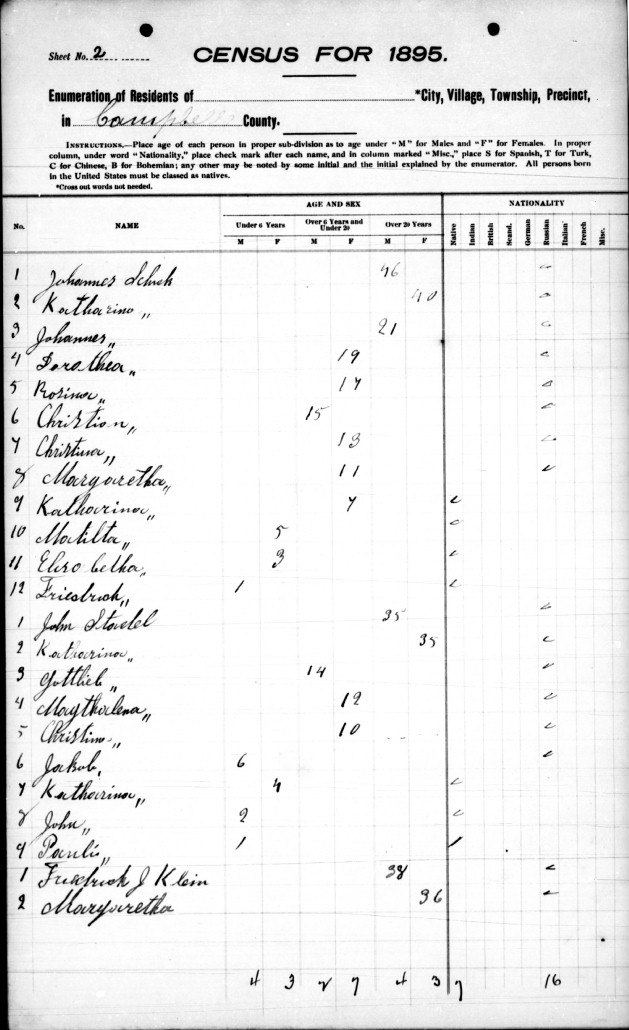 Sheet No. 2
CENSUS FOR 1895.
Enumeration of Residents of *City, Village, Township, Precinct,
in Campbell County.
INSTRUCTIONS.—Place age of each person in proper sub-division as to age under "M" for Males and "F" for Females. In proper
column, under word "Nationality," place check mark after each name, and in column marked "Misc.," place S for Spanish, T for Turk,
C for Chinese, B for Bohemian; any other may be noted by some initial and the initial explained by the enumerator. All persons born
in the United States must be classed as natives.
*Cross out words not needed.
AGE AND SEX NATIONALITY
No. NAME Under 6 Years Over 6 Years and Under 20 Over 20 Years Native Indian British Scand. German Russian Italian French Misc.
M F M F M F
1 Johannes 46 ✓
2 Katharina " 40 ✓
3 Johannes " 21 ✓
4 Dorathea " 19 ✓
5 Rosina " 17 ✓
6 Christian " 15 ✓
7 Christina " 13 ✓
8 Margaretha " 11 ✓
9 Katharina " 7 ✓
10 Matilta " 5 ✓
11 Elisabetha " 3 ✓
12 Friedrich " 1 ✓
1 John Stadel 35 ✓
2 Katharina " 35 ✓
3 Gottlieb " 14 ✓
4 Magthalena " 12 ✓
5 Christina " 10 ✓
6 Jakob " 6 ✓
7 Katharina " 4 ✓
8 John " 2 ✓
9 " 1 ✓
1 Friedrich J Klein 38 ✓
2 Margaretha 36 ✓
4 3 2 7 4 3 7 16